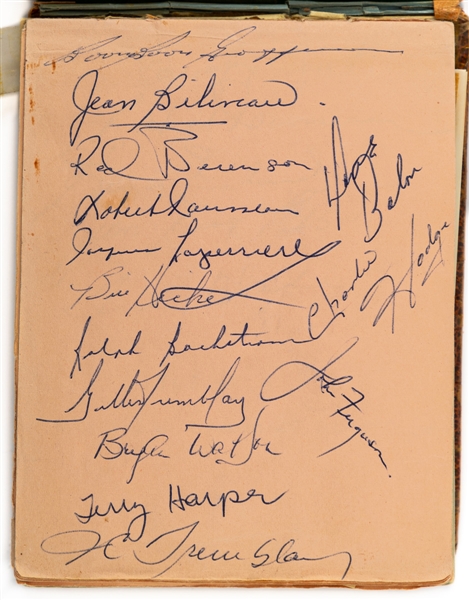 Boom Boom Geoffrion
Jean Béliveau.
Red Berenson
Robert Rousseau
Jacques Laperriere
Bill Hicke
Ralph Backstrom
Gilles Tremblay
Bryan Watson
Terry Harper
J C Tremblay
Dave Balon
Charlie Hodge
John Ferguson.